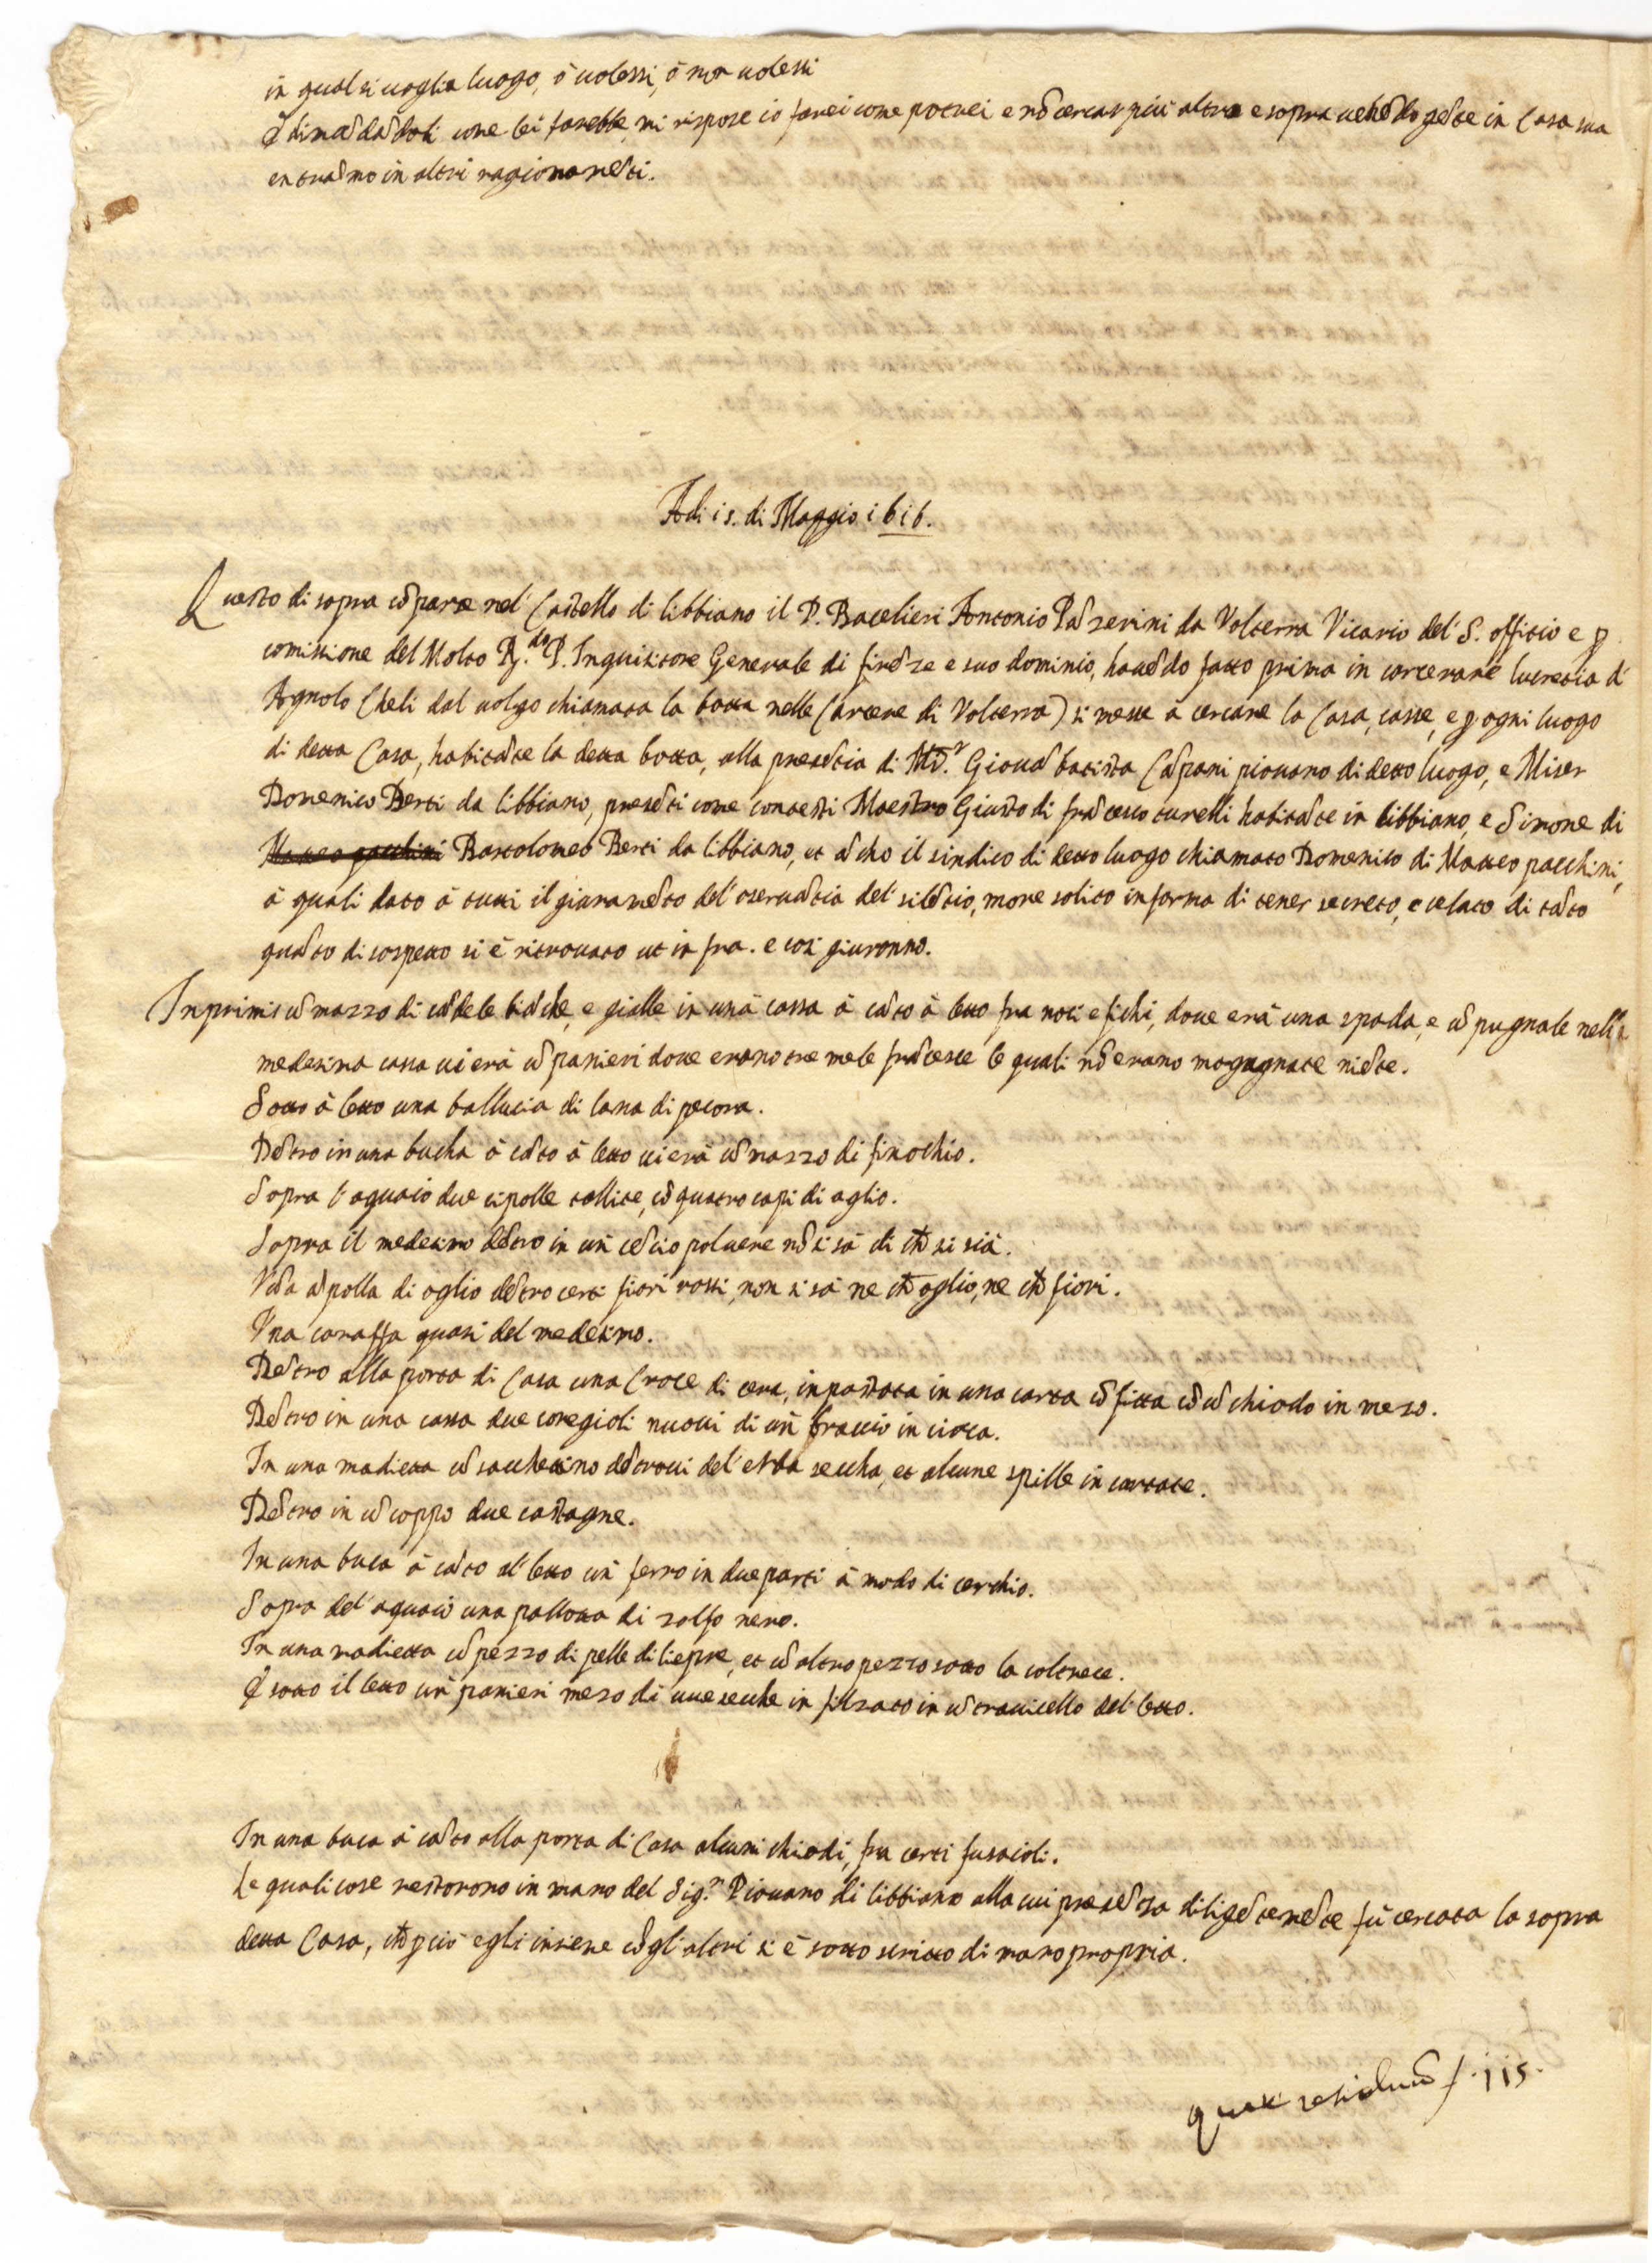 in qual si uoglia luogo, ò uolessi, ò nõ uolessi
E dimãdãdoli come lei farebbe, mi rispose io farei come potrei e nõ cercar più altro e sopra uenẽdo gẽte in Casa sua
entrãmo in altri ragionamẽti.
Adi 15. di Maggio 1616.
Questo di sopra cõparse nel Castello di libbiano il P. Bacelieri Antonio Pãzerini da Volterra Vicario del S. offitio e p
comissione del Molto R.do P. Inquisitore Generale di firẽze e suo dominio, hauẽdo fatto prima in carcerare lucretia d'
Agnolo Cheli dal uolgo chiamata la botta nelle Carcere di Volterra) si messe à cercare la Casa, casse, e p ogni luogo
di detta Casa, habitãte la detta botta, alla presẽtia di Mõ.r Giouã batista Cãpani piouano di detto luogo, e Miser
Domenico Berti da libbiano, presẽti come contesti Maestro Giusto di frãcesco turelli habitãte in libbiano, e Simone di
Matteo pacchini Bartolomeo Berti da libbiano, et ãcho il sindico di detto luogo chiamato Domenico di Matteo pacchini,
à quali dato à tutti il giuramẽto del' oseruãtia del' silẽtio, more solito in forma di tener secreto, e celato di tãto
quãto di sospetto si è ritrouato ut in fra. e cosi giuronno.
Inprimis ũ mazzo di cãdele biãche, e gialle in una cassa à cãto à letto fra noci e fichi, doue erà una spada, e ũ pugnale nella
medesima cassa ui erà ũ panieri doue erano tre mele frãcesce le quali nõ erano magagnate niẽte.
Sotto à letto una ballucia di lana di pecora.
Dẽtro in una bucha à cãto à letto ui erà ũ mazzo di finochio.
Sopra l'aquaio due cipolle tallite, cõ quatro capi di aglio.
Sopra il medesimo dẽtro in un' cẽcio poluere nõ si sà di ch̃ si sià.
Vña ãpolla di oglio dẽtro certi fiori rossi, non si sà ne ch̃ oglio, ne ch̃ fiori.
Una caraffa quasi del medesimo.
Dẽtro alla porta di Casa una Croce di cera, inpastata in una carta cõfitta cõ ũ chiodo in mezo.
Dẽtro in una cassa due coregioli nuoui di un' braccio in circa.
In una madietta ũ sacchettino dẽtroui del' erba seccha, et alcune spille in cartate.
Dẽtro in ũ coppo due castagne.
In una buca à cãto al' letto un' ferro in due parti à modo di cerchio.
Sopra del' aquaio una pallotta di zolfo nero.
In una madietta ũ pezzo di pelle di liepre, et ũ altro pezzo sotto la coltrece.
E sotto il letto un' panieri mezo di uue secche in filzato in ũ trauicello del' letto.
In una buca à cãto alla porta di Casa alcuni chiodi, fra certi fusaioli.
Le quali cose restorono in mano del Sig.r Piouano di libbiano alla cui presẽza diligẽtemẽte fù cercata la sopra
detta Casa, ch̃ p ciò egli insieme cõ gl' altri si è sotto scritto di mano propria.
quae residuũ f. 115.